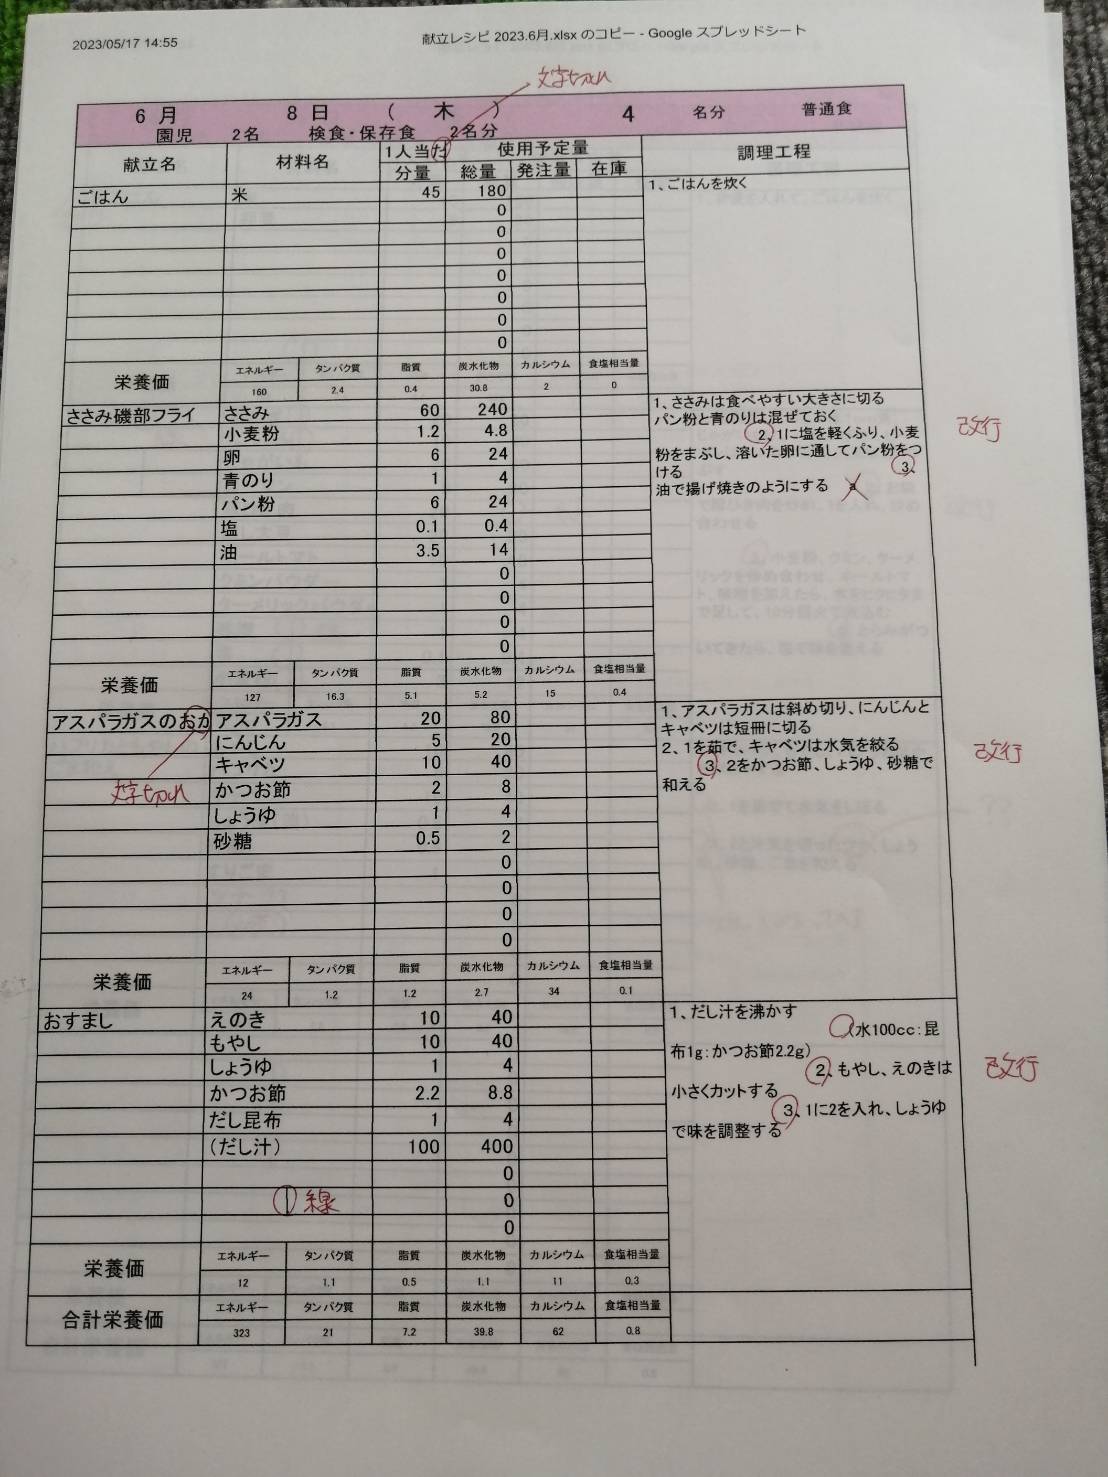 2023/05/17 14:55 献立レシピ 2023.6月.xlsx のコピー - Google スプレッドシート
文字切れ
6 月 8 日 ( 木 ) 4 名分 普通食
園児 2名 検食・保存食 2名分
献立名 材料名 1人当た 使用予定量 調理工程
分量 総量 発注量 在庫
ごはん 米 45 180 1、ごはんを炊く
0
0
0
0
0
0
0
栄養価 エネルギー タンパク質 脂質 炭水化物 カルシウム 食塩相当量
160 2.4 0.4 30.8 2 0
ささみ磯部フライ ささみ 60 240 1、ささみは食べやすい大きさに切る
小麦粉 1.2 4.8 パン粉と青のりは混ぜておく
卵 6 24 2、1に塩を軽くふり、小麦 改行
青のり 1 4 粉をまぶし、溶いた卵に通してパン粉をつ
パン粉 6 24 ける 3、
塩 0.1 0.4 油で揚げ焼きのようにする a
油 3.5 14
0
0
0
0
栄養価 エネルギー タンパク質 脂質 炭水化物 カルシウム 食塩相当量
127 16.3 5.1 5.2 15 0.4
アスパラガスのおか アスパラガス 20 80 1、アスパラガスは斜め切り、にんじんと
にんじん 5 20 キャベツは短冊に切る
キャベツ 10 40 2、1を茹で、キャベツは水気を絞る 改行
かつお節 2 8 3、2をかつお節、しょうゆ、砂糖で
文字切れ しょうゆ 1 4 和える
砂糖 0.5 2
0
0
0
0
栄養価 エネルギー タンパク質 脂質 炭水化物 カルシウム 食塩相当量
24 1.2 1.2 2.7 34 0.1
おすまし えのき 10 40 1、だし汁を沸かす
もやし 10 40 (水100cc:昆
しょうゆ 1 4 布1g:かつお節2.2g)
かつお節 2.2 8.8 2、もやし、えのきは 改行
だし昆布 1 4 小さくカットする
(だし汁) 100 400 3、1に2を入れ、しょうゆ
0 で味を調整する
線 0
0
栄養価 エネルギー タンパク質 脂質 炭水化物 カルシウム 食塩相当量
12 1.1 0.5 1.1 11 0.3
合計栄養価 エネルギー タンパク質 脂質 炭水化物 カルシウム 食塩相当量
323 21 7.2 39.8 62 0.8